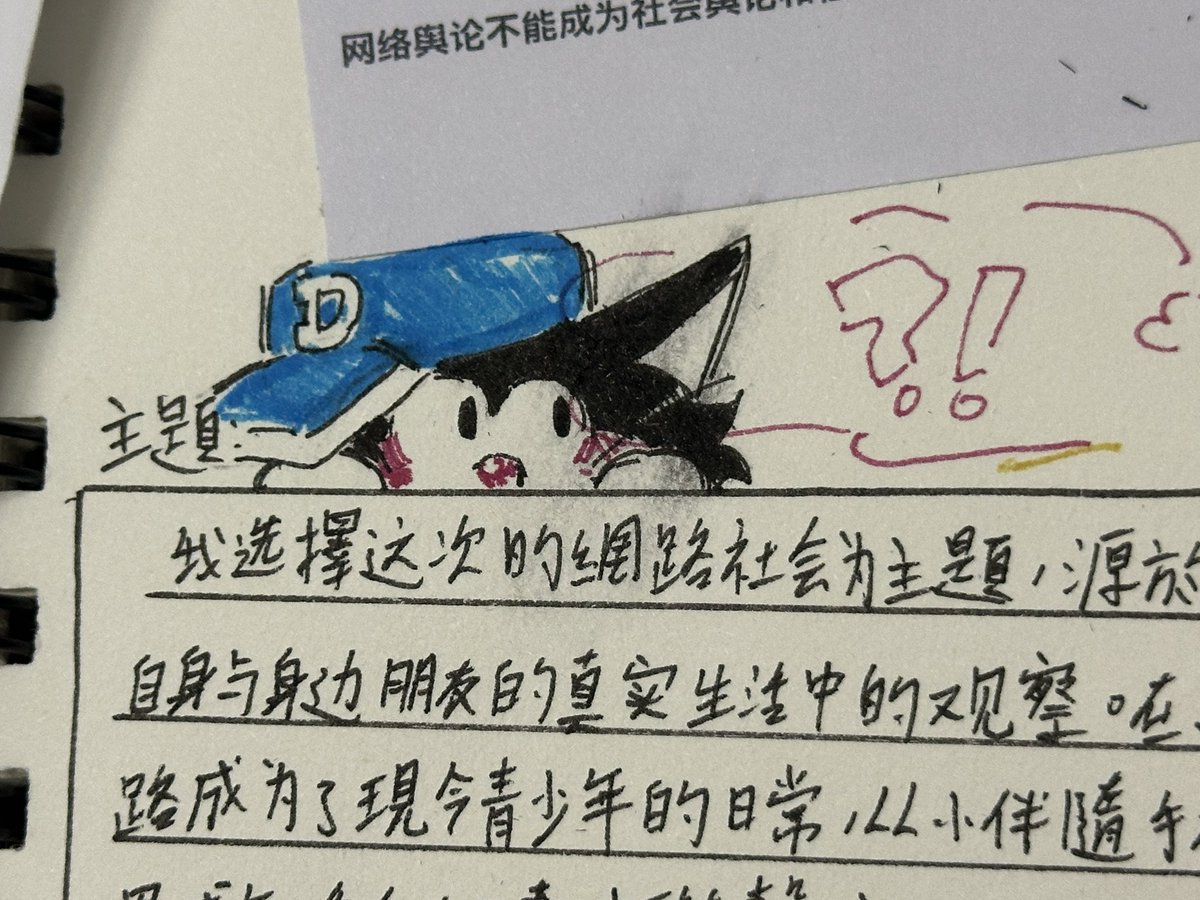 网络舆论不能成为社会舆论和
D
?!
主题:
我选擇这次的網路社会为主题，源於
自身与身边朋友的真实生活中的观察。在
路成为了現今青少年的日常，从小伴隨手